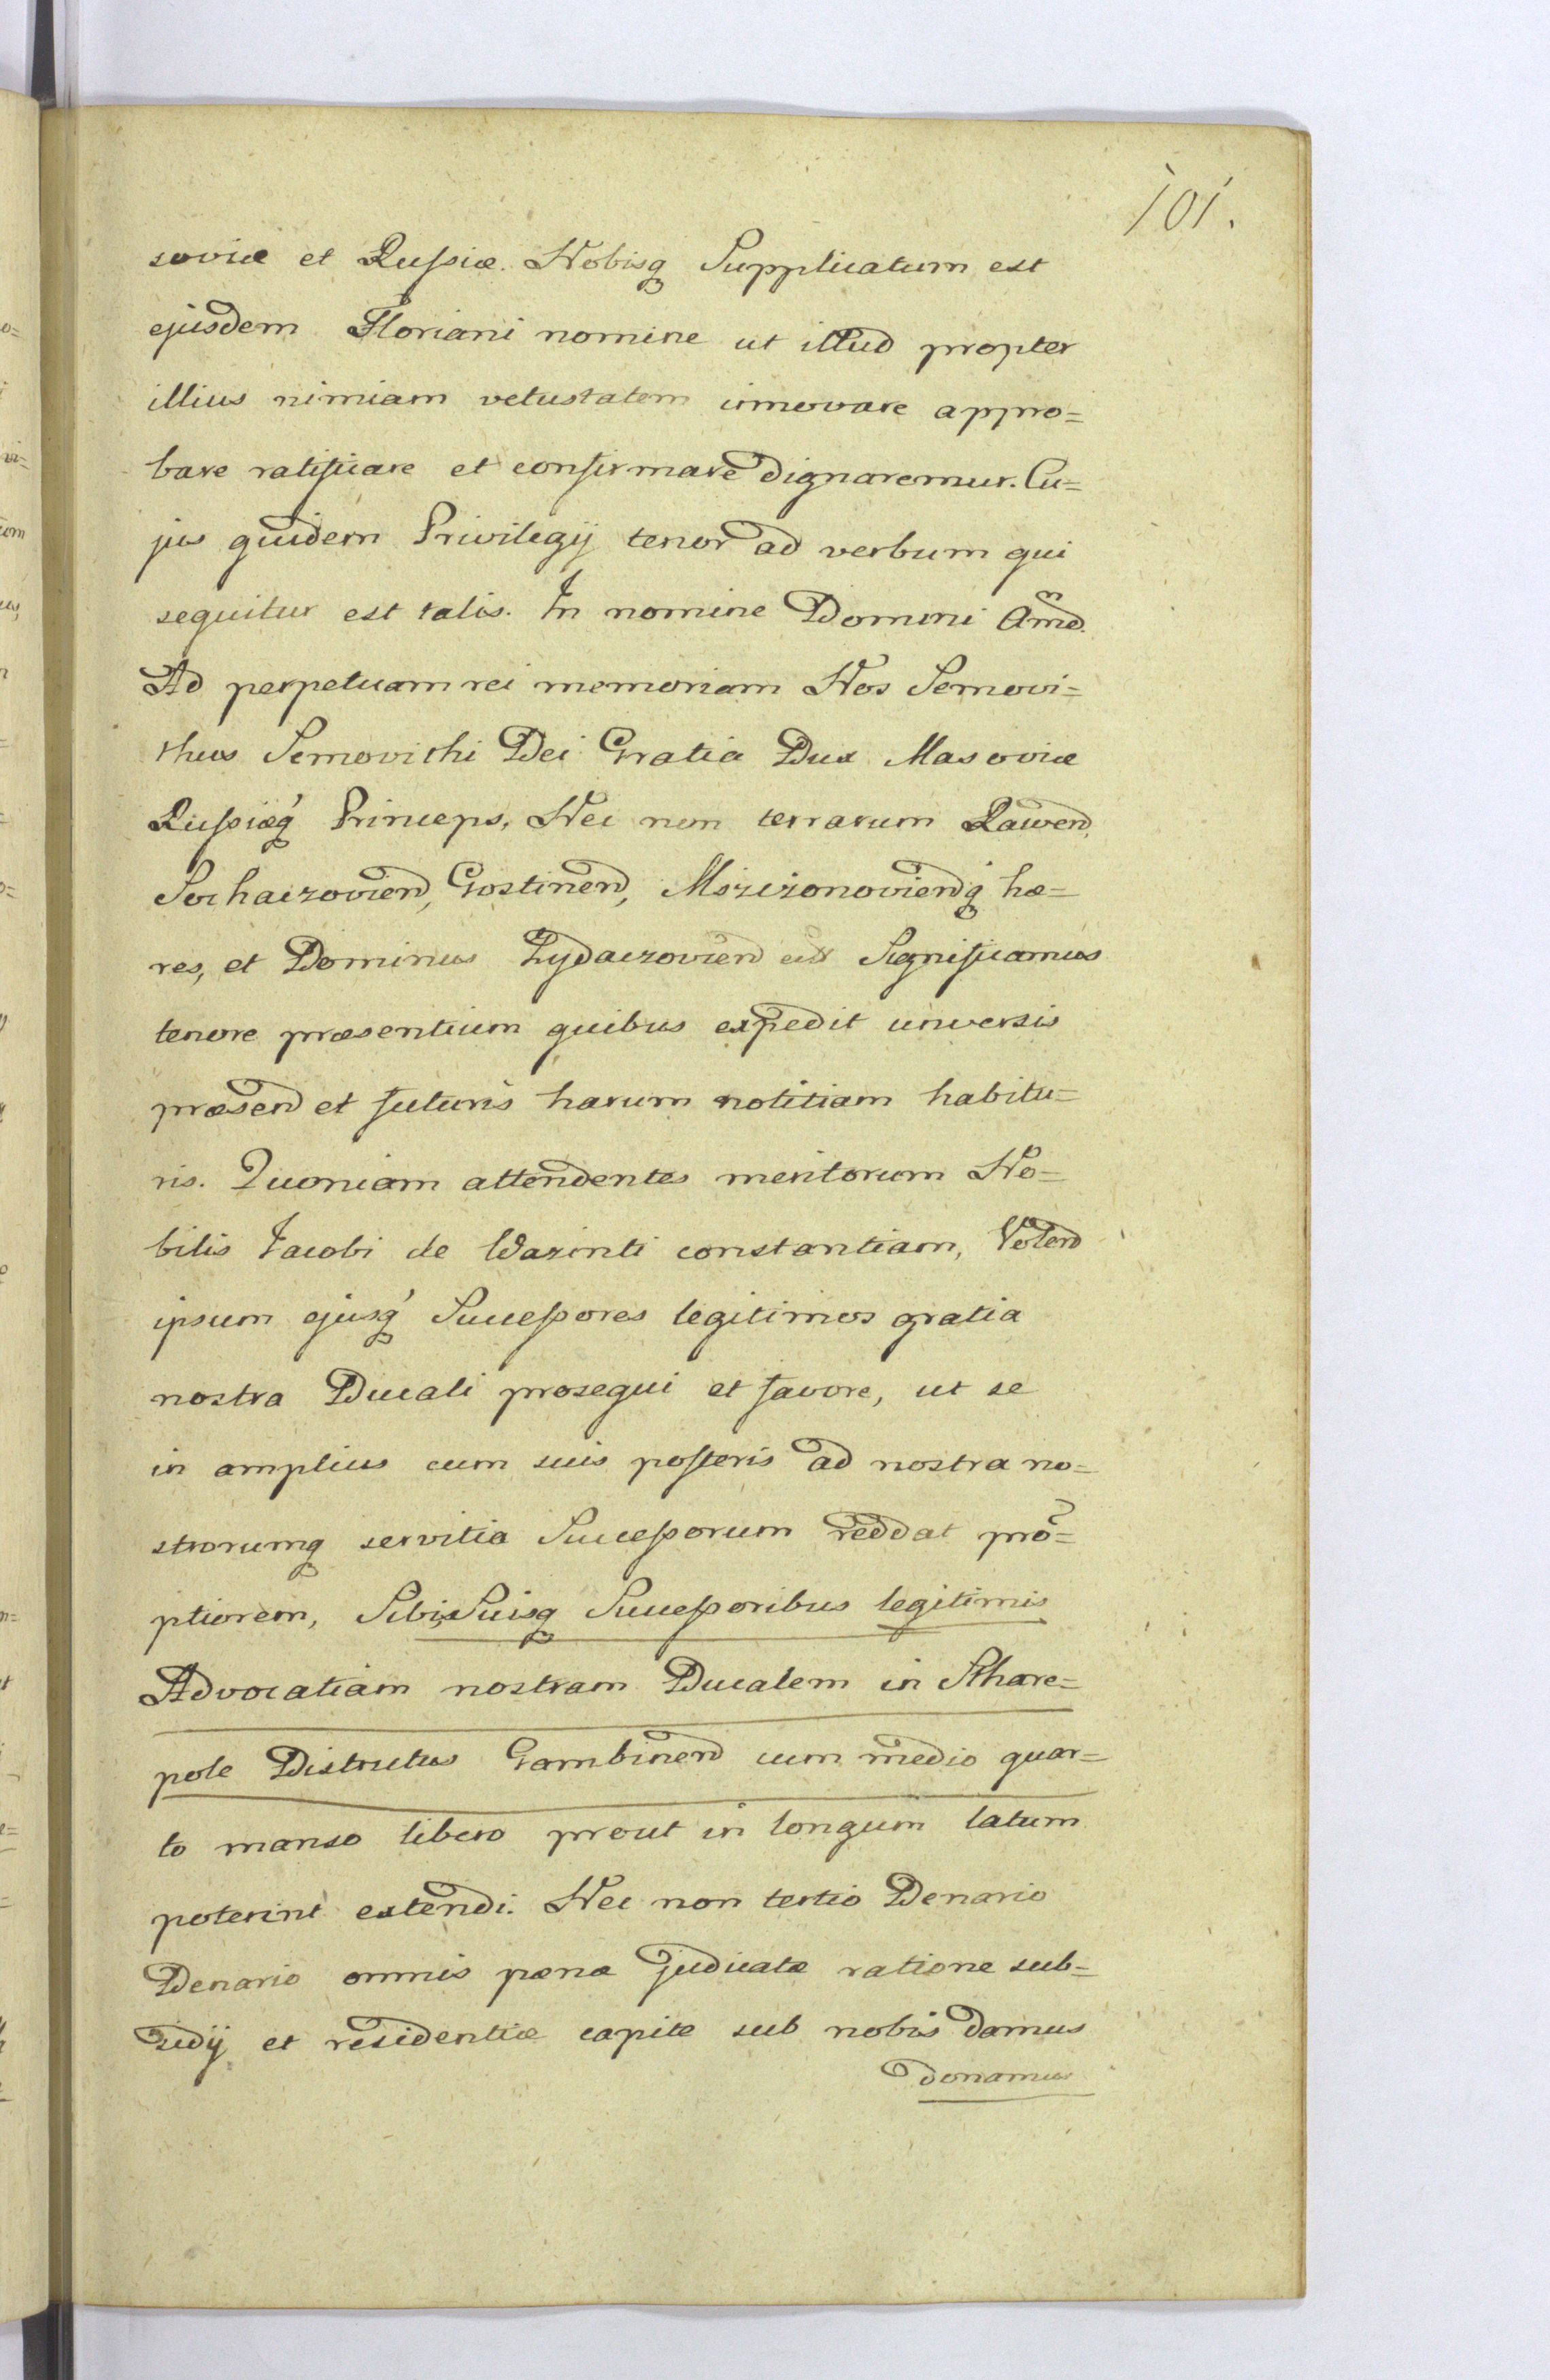 101.
soviæ et Russiæ. Nobisq Supplicatum est
ejusdem Floriani nomine ut illud propter
illius nimiam vetustatem innovare appro=
bare ratificare et confirmare dignaremur. Cu=
jus quidem Privilegij tenor ad verbum qui
sequitur est talis. In nomine Domini Amē.
Ad perpetuam rei memoriam Nos Semovi=
thus Semovithi Dei Gratia Dux Masoviæ
Russiæq́ Princeps, Nec non terrarum Rawen̄,
Sochaczovien̄, Gostinen̄, Mszczonovien̄q́ hæ=
res, et Dominus Zydaczovien̄ etc Significamus
tenore præsentium quibus expedit universis
præsen̄ et futuris harum notitiam habitu=
ris. Quoniam attendentes meritorum No=
bilis Jacobi de Wazinti constantiam, Volen̄
ipsum ejusq́ Successores legitimos gratia
nostra Ducali prosequi et favore, ut se
in amplius cum suis posteris ad nostra no=
strorumq servitia Successorum reddat prō=
ptiorem, Sibi, Suisq Successoribus legitimis
Advocatiam nostram Ducalem in Sthare=
pole Districtus Gambinen̄ cum medio quar=
to manso libero prout in longum latum
poterint extendi. Nec non tertio Denario
Denario omnis pœnæ judicatæ ratione sub=
sidij et residentiæ capite sub nobis damus
donamus